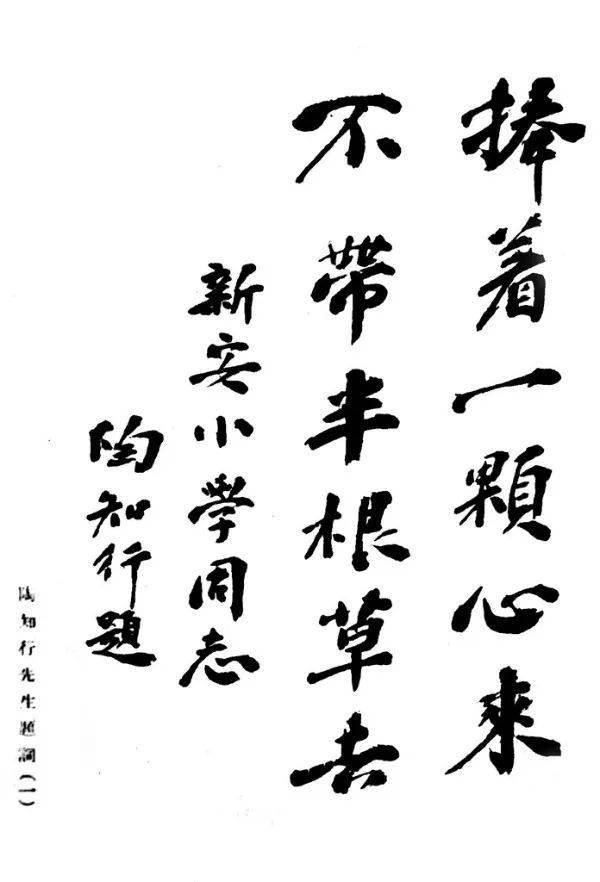 捧着一顆心來
不帶半根草去
新安小學同志
陶知行題
陶知行先生題詞(一)